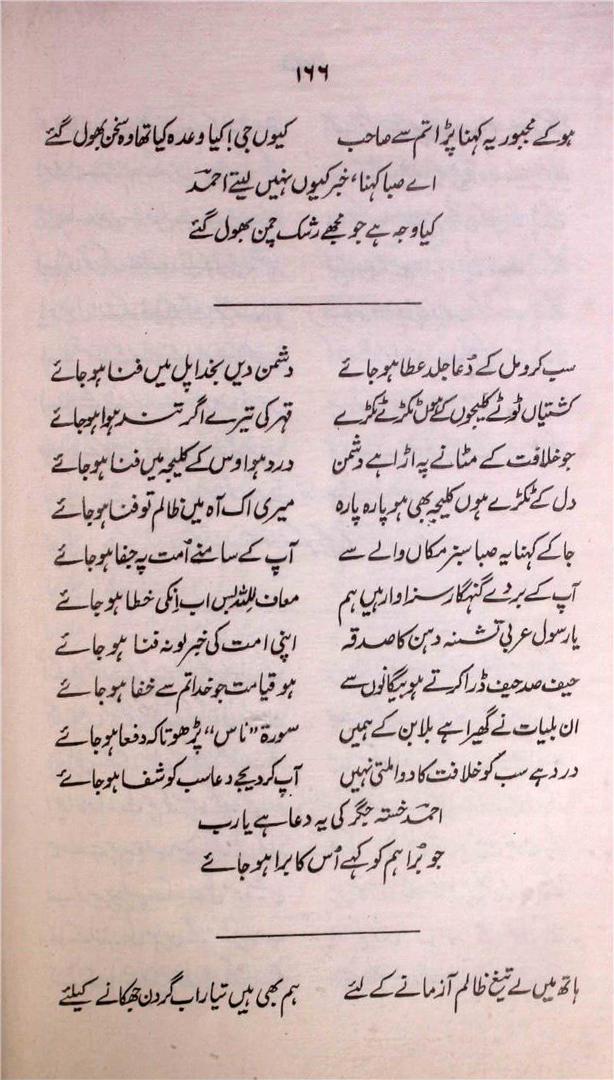 ۱۶۶
ہو کے مجبور یہ کہنا پڑا تم سے صاحب کیوں جی! کیا وعدہ کیا تھا وہ سخن بھول گئے
اے صبا کہنا، خبر کیوں نہیں لیتے احمدؔ
کیا وجہ ہے جو مجھے رشک چمن بھول گئے
سب کرو مل کے دُعا جلد عطا ہو جائے دشمن دیں بخدا پل میں فنا ہو جائے
کشتیاں ٹوٹے کلیجوں کے ہوں ٹکڑے ٹکڑے قہر کی تیرے اگر تند ہوا ہو جائے
جو خلافت کے مٹانے پہ اڑا ہے دشمن درد ہو اوس کے کلیجہ میں فنا ہو جائے
دل کے ٹکڑے ہوں کلیجہ بھی ہو پارہ پارہ میری اک آہ میں ظالم تو فنا ہو جائے
جا کے کہنا یہ صبا سبز مکاں والے سے آپ کے سامنے اُمت پہ جفا ہو جائے
آپ کے بردے گنہگار سزاوار ہیں ہم معاف للہ بس اب انکی خطا ہو جائے
یا رسول عربی تشنہ دہن کا صدقہ اپنی امت کی خبر لو نہ فنا ہو جائے
حیف صد حیف ڈرا کرتے ہو بیگانوں سے ہو قیامت جو خدا تم سے خفا ہو جائے
ان بلیات نے گھیرا ہے بلا بن کے ہمیں سورۃ "ناس" پڑھو تاکہ دفعا ہو جائے
درد ہے سب کو خلافت کا دوا ملتی نہیں آپ کر دیجے دعا سب کو شفا ہو جائے
احمدؔ خستہ جگر کی یہ دعا ہے یا رب
جو بُرا ہم کو کہے اُس کا برا ہو جائے
ہاتھ میں لے تیغ ظالم آزمانے کے لئے ہم بھی ہیں تیار اب گردن جھکانے کیلئے